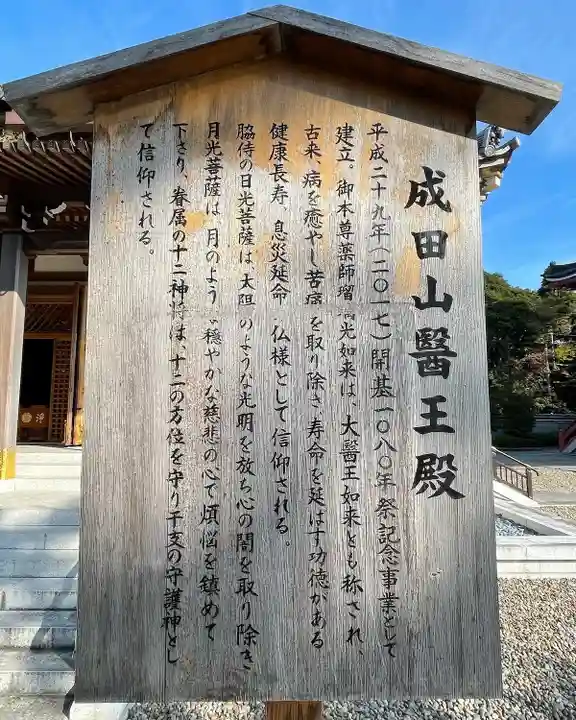 成田山醫王殿
平成二十九年（二〇一七）開基一〇八〇年祭記念事業として
建立。御本尊薬師瑠璃光如来は、大醫王如来とも称され、
古来、病を癒やし苦痛を取り除き寿命を延ばす功徳がある
健康長寿、息災延命 仏様として信仰される。
脇侍の日光菩薩は、太陽のような光明を放ち心の闇を取り除き
月光菩薩は、月のよう 穏やかな慈悲の心で煩悩を鎮めて
下さり、眷属の十二神将は、十二の方位を守り干支の守護神とし
て信仰される。
浄